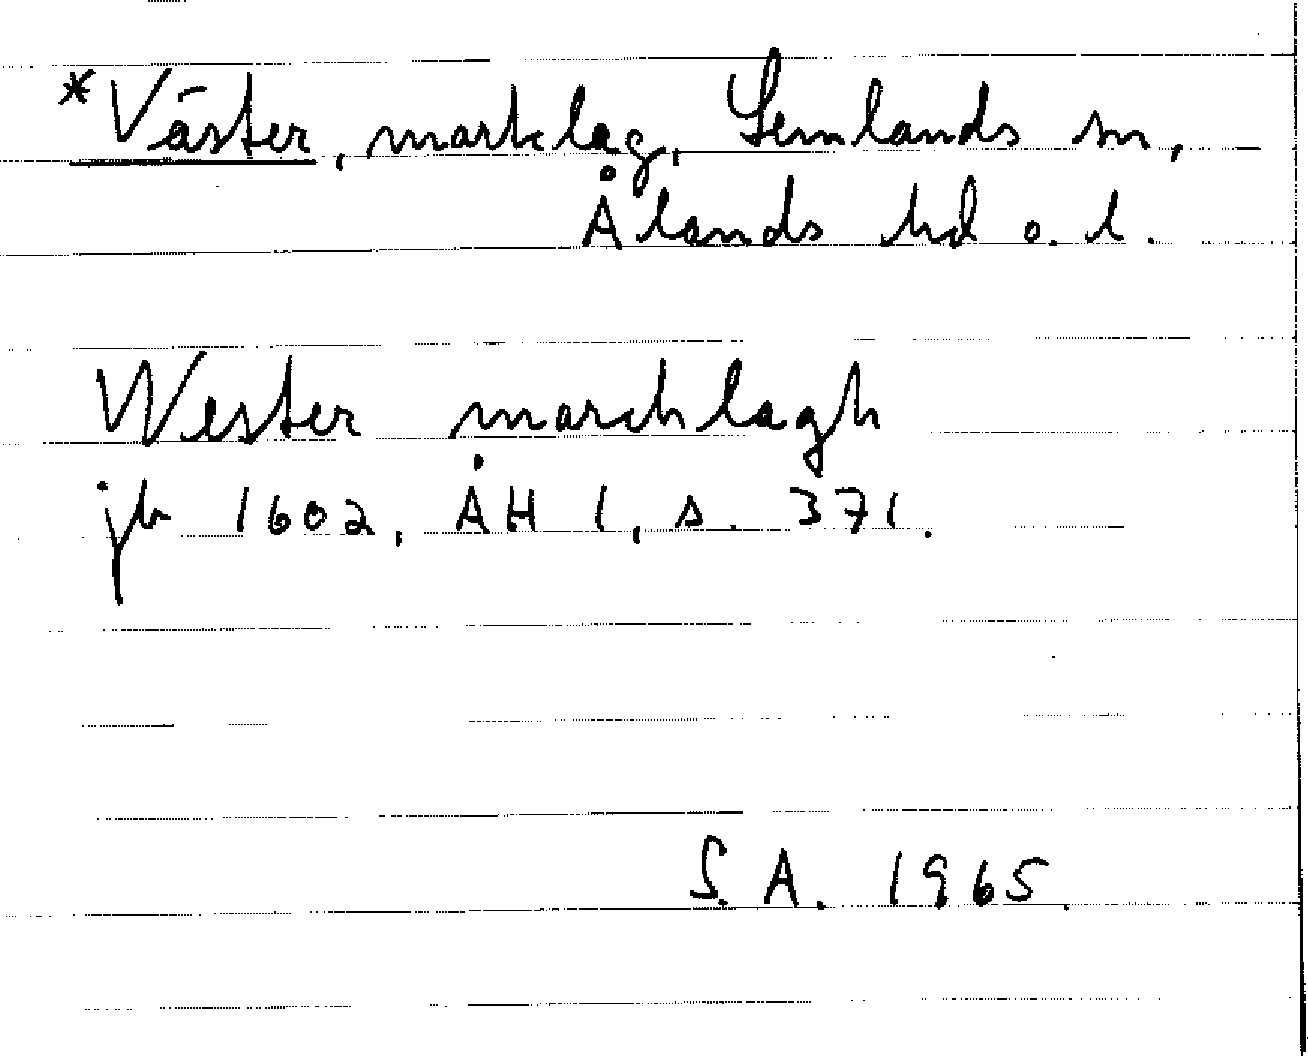 *Väster, marklag, Lemlands sn,
Ålands hd o. l.
Wester marchlagh
jb 1602, ÅH 1, s. 371.
S. A. 1965.